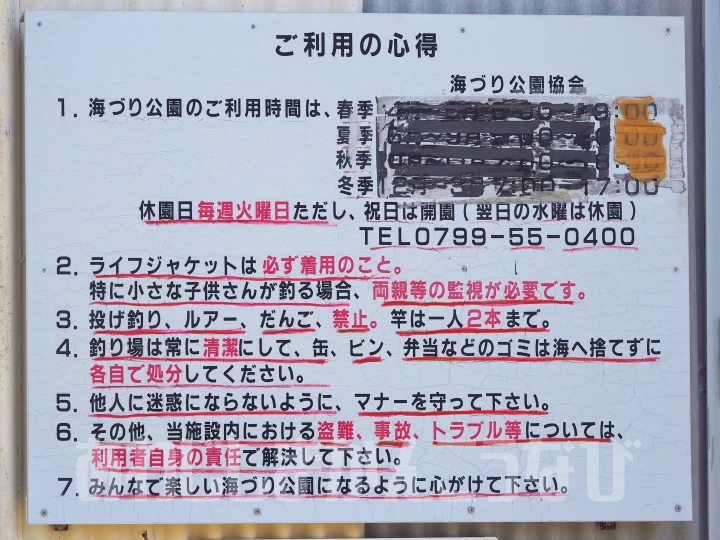 ご利用の心得
海づり公園協会
1. 海づり公園のご利用時間は、春季
夏季
秋季
冬季 17:00
休園日毎週火曜日ただし、祝日は開園(翌日の水曜は休園)
TEL0799-55-0400
2. ライフジャケットは必ず着用のこと。
特に小さな子供さんが釣る場合、両親等の監視が必要です。
3. 投げ釣り、ルアー、だんご、禁止。竿は一人2本まで。
4. 釣り場は常に清潔にして、缶、ビン、弁当などのゴミは海へ捨てずに
各自で処分してください。
5. 他人に迷惑にならないように、マナーを守って下さい。
6. その他、当施設内における盗難、事故、トラブル等については、
利用者自身の責任で解決して下さい。
7. みんなで楽しい海づり公園になるように心がけて下さい。